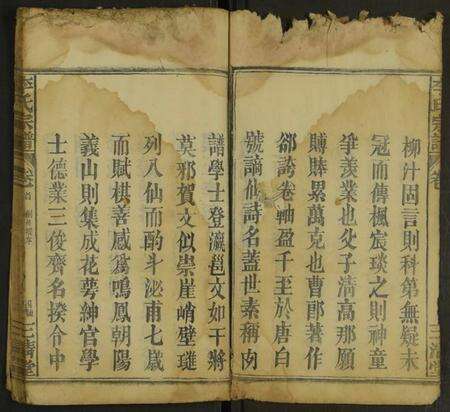 柳汁固言則科第無疑未
冠而傳楓宸琰之則神童
爭羨業也父子清高那願
賻賕累萬克也曹郎著作
卻誇卷軸盈千至於唐白
號謫仙詩名蓋世素稱內
譜學士登瀛邕文如干將
莫邪賀文似崇崖峭壁璡
列八仙而酌斗泌甫七歲
而賦棋善感爲鳴鳳朝陽
義山則集成花萼紳官學
士德業三俊齊名揆令中
李氏宗譜
卷
三清堂
李氏宗譜
卷
三清堂